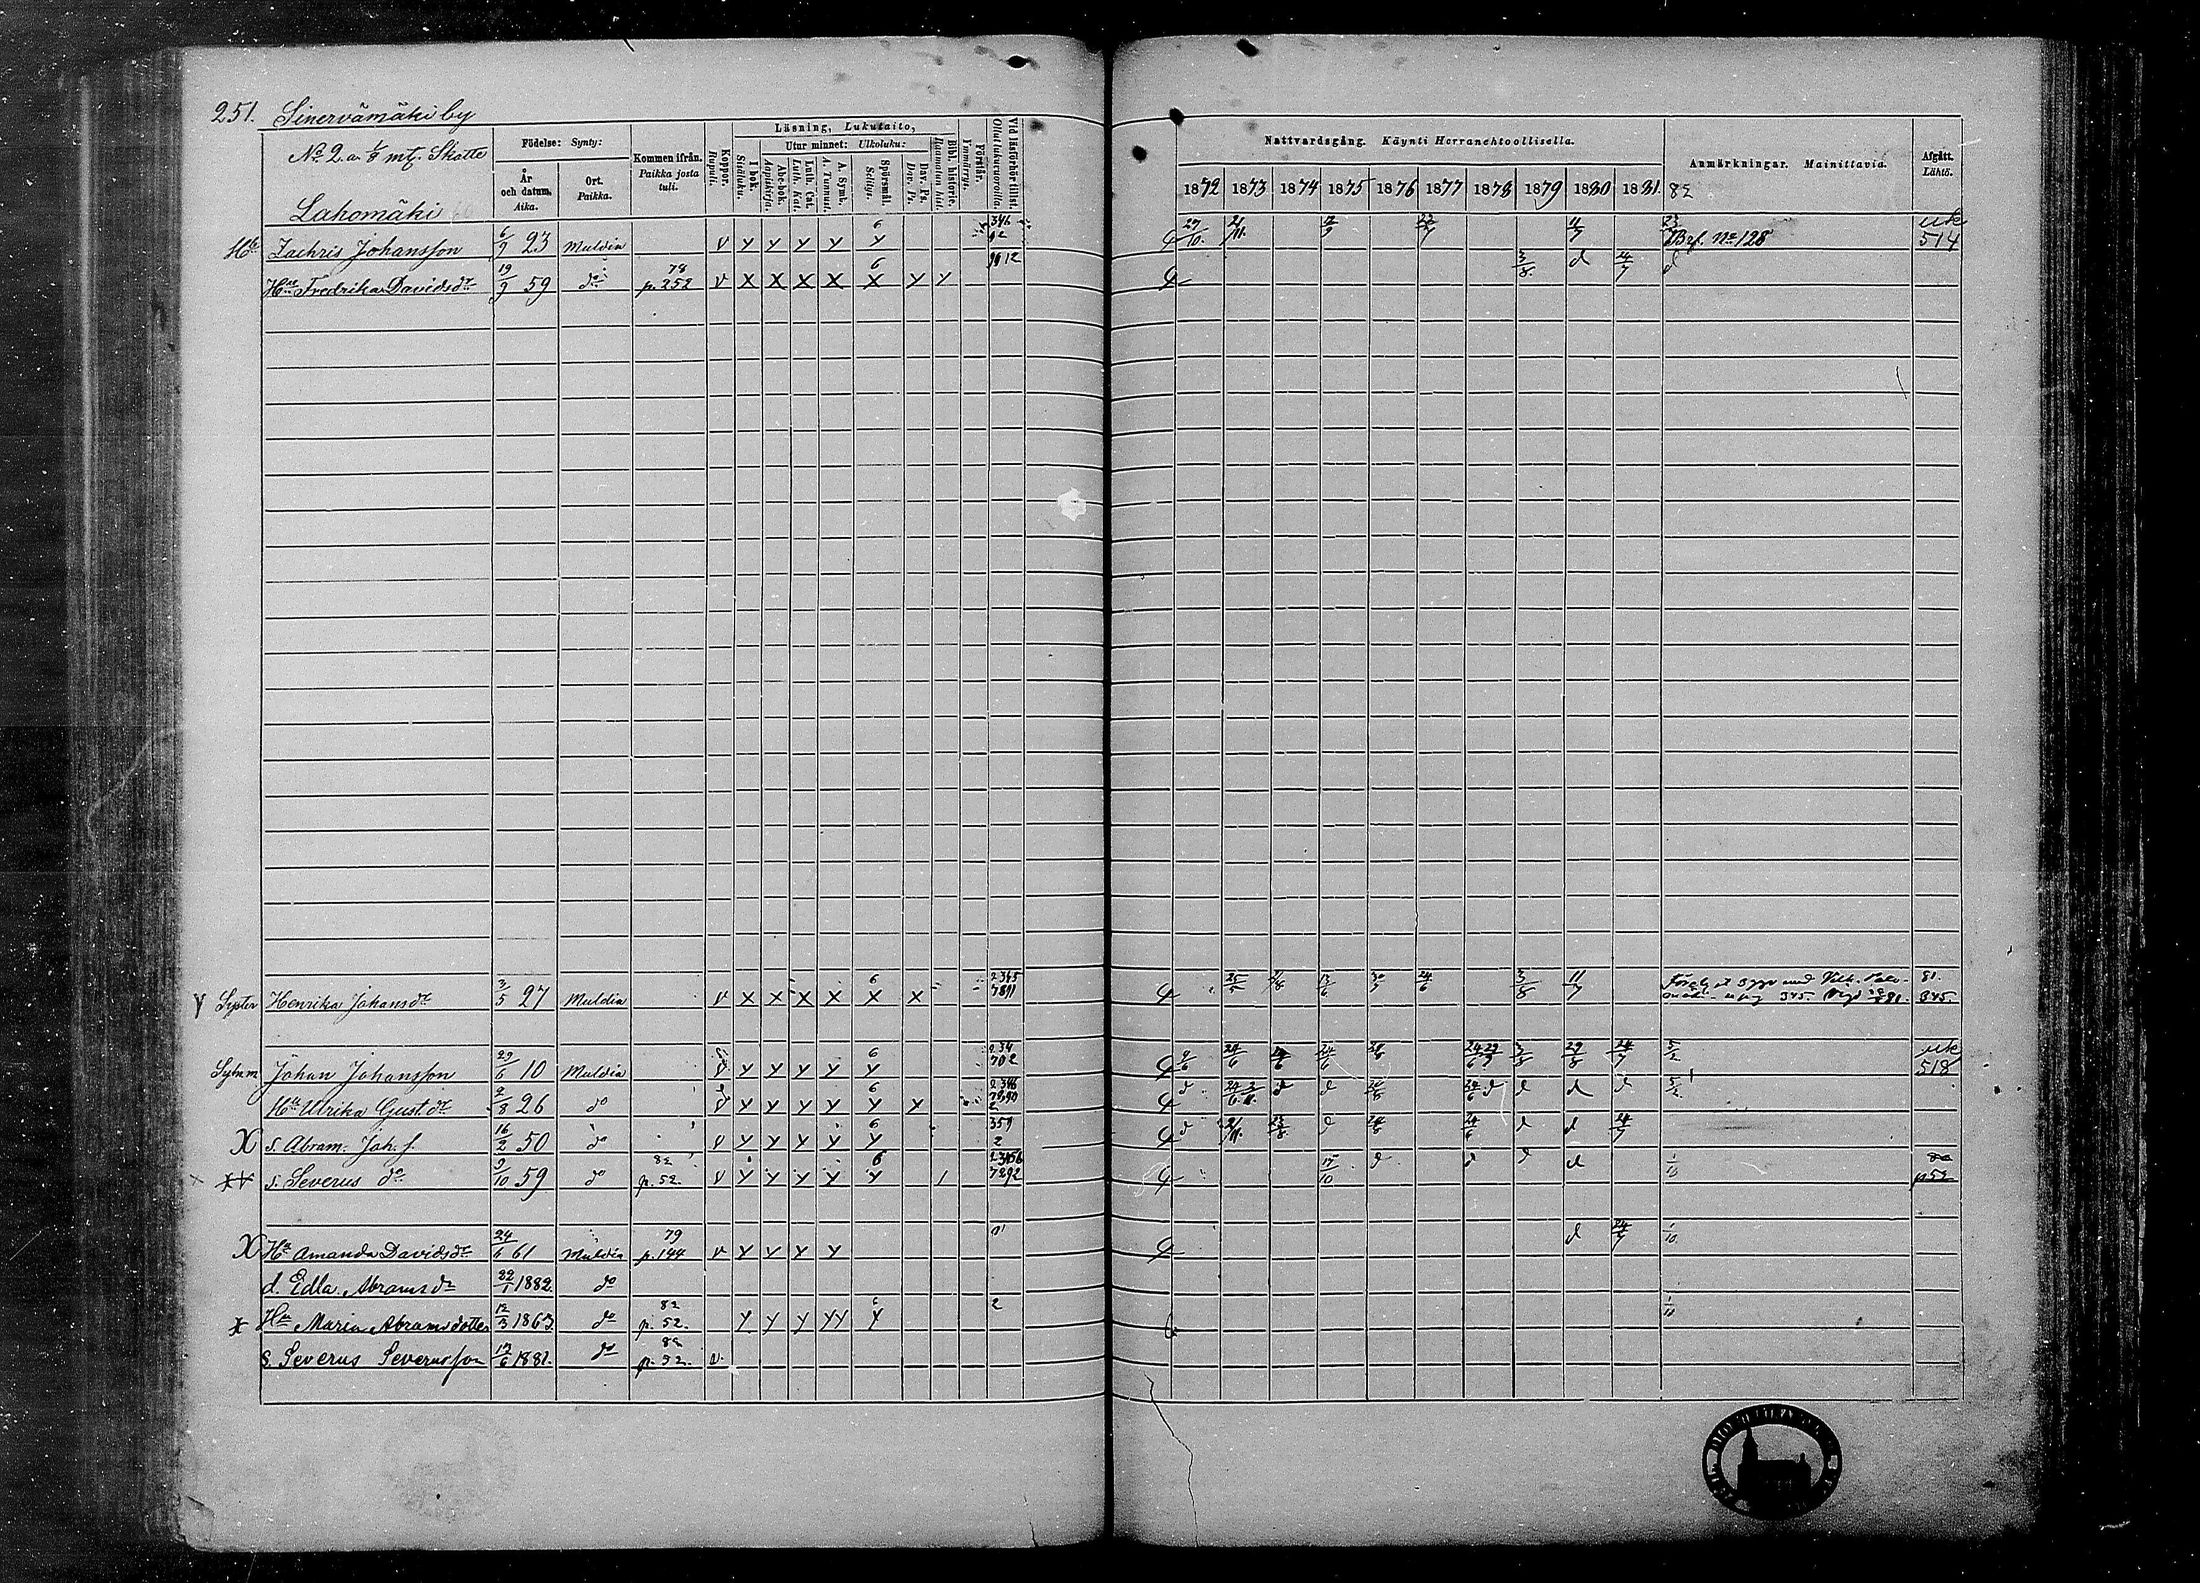 251. Sinervämäki by
No 2. a 1/8 mt. Skatte
Lahomäki
Födelse: Synty:
År och datum. Aika.
Ort. Paikka.
Kommen ifrån. Paikka josta tuli.
Koppor. Rupuli.
Läsning, Lukutaito,
I bok. Sisäluku.
Utur minnet: Ulkoluku:
Abc-bok. Aapiskirja.
Luth. Cat. Luth. Kat.
A. Symb. A. Tunnust.
Spörsmål. Selitys.
Dav. Ps. Dav. Ps.
Bibl. historie. Raamatun hist.
Förstår. Ymmärrys.
Vid läsförhör tillst. Ollut lukuvuoroilla
Nattvardsgång. Käynti Herranehtoollisella.
1872 1873 1874 1875 1876 1877 1878 1879 1880 1881. 82
Anmärkningar. Mainittavia.
Afgått. Lähtö.
Zachris Johansson 6/9 23 Muldia v y y y y 6 y 346 27/10. 21/11. 22/7 11/7 Bef. No 128 514
Hu Fredrika Davidsdr 19/9 59 do 78 p. 252 v x x x x 6 x y y 3/8 d 24/7 d
Syster Henrika Johansdr 3/5 27 Muldia v x x x x 6 x x 2345 7891 25/5 24/6 3/8 11/7 345. 81. 345.
Johan Johansson 29/6 10 Muldia v y y y y 6 y 234 702 24/6 24/6 3/8 29/8 24/7 5/2 518
Hu Ulrika Gust.dr 2/8 26 do v y y y y 6 y x 2346 d d d d d d d 5/2
X s. Abram Joh. s. 16/2 50 do v y y y y 6 y 359 2 d 21/11. 23/8 d 24/6 d d 24/7
s. Severus do 9/10 59 do 82 p. 52. v y y y y 6 y 23456 7892 17/10 d d d d 1/10 p 52
X Hu Amanda Davidsdr 24/6 61 Muldia 79 p. 144 v y y y y d 24/7 1/10
d. Edla Abramsdr 22/1 1882. do
Hu Maria Abramsdotter 12/3 1863. do 82 p. 52. y y y yy 6 y 2 1/10
s. Severus Severusson 17/6 1881. do 82 p. 52. v.